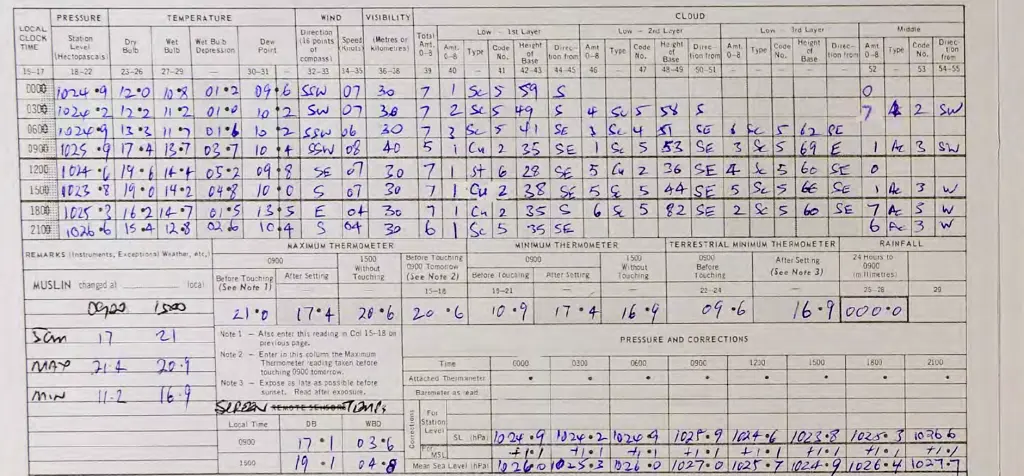 PRESSURE TEMPERATURE WIND VISIBILITY CLOUD
LOCAL CLOCK TIME Station Level (Hectopascals) Dry Bulb Wet Bulb Wet Bulb Depression Dew Point Direction (16 points of compass) Speed (knots) (Metres or kilometres) Total Amt. 0-8 Low - 1st Layer Low - 2nd Layer Low - 3rd Layer Middle
Amt. 0-8 Type Code No. Height of Base Direction from Amt. 0-8 Type Code No. Height of Base Direction from Amt. 0-8 Type Code No. Height of Base Direction from Amt. 0-8 Type Code No. Direction from
15-17 18-22 23-26 27-29 — 30-31 32-33 34-35 36-38 39 40 — 41 42-43 44-45 46 — 47 48-49 50-51 — — — — — 52 — 53 54-55
0000 1024.9 12.0 10.8 01.2 09.6 SSW 07 30 7 1 Sc 5 59 S 0
0300 1024.2 12.2 11.2 01.0 10.2 SW 07 30 7 2 Sc 5 49 S 4 Sc 5 58 S 7 A 2 SW
0600 1024.9 13.3 11.7 01.6 10.2 SSW 06 30 7 3 Sc 5 41 SE 3 Sc 4 51 SE 6 Sc 5 62 SE
0900 1025.9 17.4 13.7 03.7 10.4 SSW 08 40 5 1 Cu 2 35 SE 1 Sc 5 53 SE 3 Sc 5 69 E 1 Ac 3 SW
1200 1024.6 19.6 14.4 05.2 09.8 SE 07 30 7 1 St 6 28 SE 5 Cu 2 36 SE 4 Sc 5 60 SE 0
1500 1023.8 19.0 14.2 04.8 10.0 S 07 30 7 1 Cu 2 38 SE 5 Sc 5 44 SE 5 Sc 5 66 SE 1 Ac 3 W
1800 1025.3 16.2 14.7 01.5 13.5 E 04 30 7 1 Cu 2 35 S 6 Sc 5 82 SE 2 Sc 5 60 SE 7 Ac 5 W
2100 1026.6 15.4 12.8 02.6 10.4 S 04 30 6 1 Sc 5 35 SE 6 Ac 3 W
REMARKS (Instruments, Exceptional Weather, etc.) MAXIMUM THERMOMETER MINIMUM THERMOMETER TERRESTRIAL MINIMUM THERMOMETER RAINFALL
0900 1500 Without Touching Before Touching 0900 Tomorrow (See Note 2) 0900 1500 Without Touching 0900 Before Touching After Setting (See Note 3) 24 Hours to 0900 (millimetres)
Before Touching (See Note 1) After Setting Before Touching After Setting
MUSLIN changed at local
15-18 19-21 — — 22-24 25-28 29
0900 1500
21.0 17.4 20.6 20.6 10.9 17.4 16.9 09.6 16.9 000.0
9am 17 21
MAX 21.4 20.9
MIN 11.2 16.9
Note 1 — Also enter this reading in Col 15-18 on previous page.
Note 2 — Enter in this column the Maximum Thermometer reading taken before touching 0900 tomorrow.
Note 3 — Expose as late as possible before sunset. Read after exposure.
SCREEN REMOTE SENSOR TEMPS
Local Time DB WBD
0900 17.1 03.6
1500 19.1 04.8
PRESSURE AND CORRECTIONS
Time 0000 0300 0600 0900 1200 1500 1800 2100
Attached Thermometer • • • • • • • •
Barometer as read
Corrections For Station Level
SL (hPa) 1024.9 1024.2 1024.9 1025.9 1024.6 1023.8 1025.3 1026.6
For MSL +1.1 +1.1 +1.1 +1.1 +1.1 +1.1 +1.1 +1.1
Mean Sea Level (hPa) 1026.0 1025.3 1026.0 1027.0 1025.7 1024.9 1026.4 1027.7